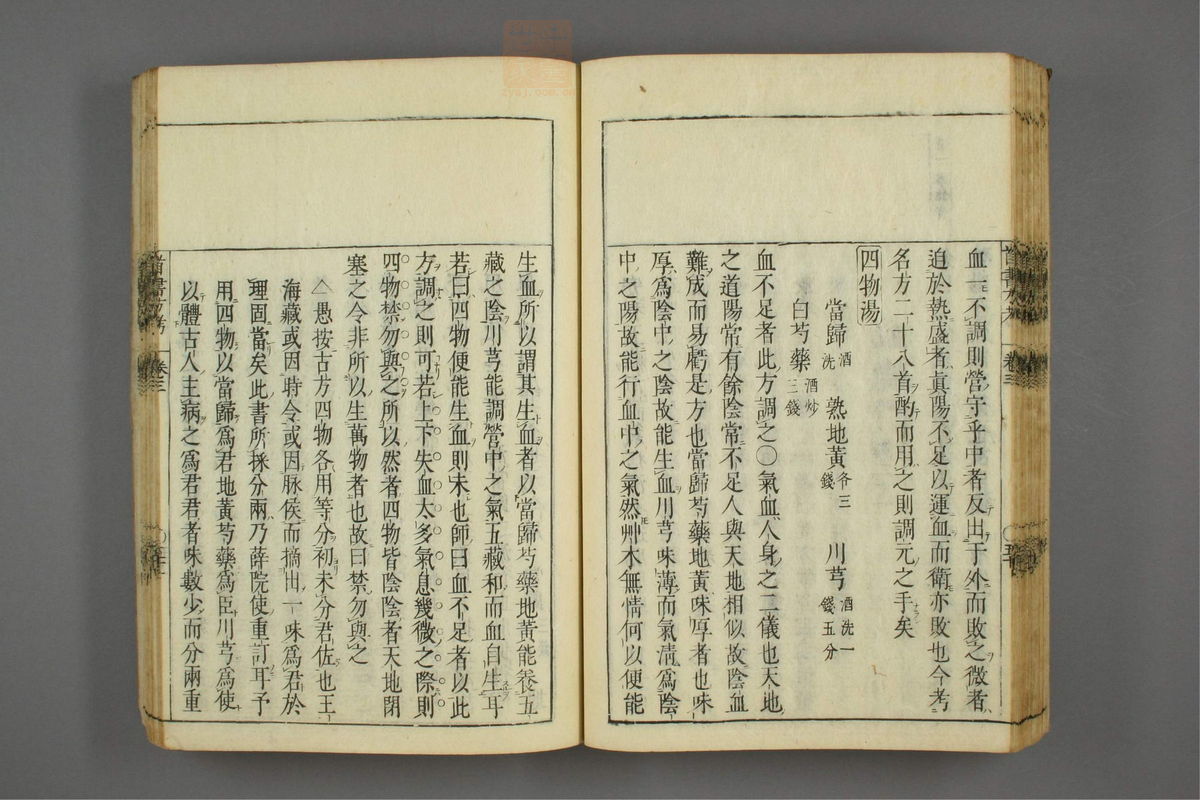 血一不調則營守乎中者反出于外而敗之微者
迫於熱盛者真陽不足以運血而衛亦敗也今考
名方二十八首酌而用之則調元之手矣
四物湯
當歸酒洗 熟地黃各三錢 川芎酒洗一錢五分
白芍藥酒炒三錢
血不足者此方調之〇氣血人身之二儀也天地
之道陽常有餘陰常不足人與天地相似故陰血
難成而易虧是方也當歸芍藥地黃味厚者也味
厚為陰中之陰故能生血川芎味薄而氣清為陰
中之陽故能行血中之氣然艸木無情何以便能
生血所以謂其生血者以當歸芍藥地黃能養五
藏之陰川芎能調營中之氣五藏和而血自生耳
若曰四物便能生血則未也師曰血不足者以此
方調之則可若上下失血太多氣息幾微之際則
四物禁勿與之所以然者四物皆陰陰者天地閉
塞之令非所以生萬物者也故曰禁勿與之
△愚按古方四物各用等分初未分君佐也王
海藏或因時令或因脉侯而摘出一味為君於
理固當矣此書所採分兩乃薛院使重訂耳予
用四物以當歸為君地黃芍藥為臣川芎為使
以體古人主病之為君君者味數少而分兩重
卷三
卷三